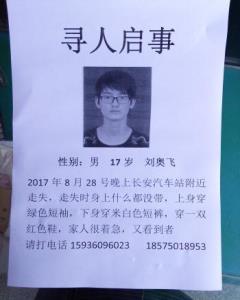 寻人启事
性别：男 17岁 刘奥飞
2017年8月28号晚上长安汽车站附近
走失，走失时身上什么都没带，上身穿
绿色短袖，下身穿米白色短裤，穿一双
红色鞋，家人很着急，又看到者
请打电话 15936096023 18575018953